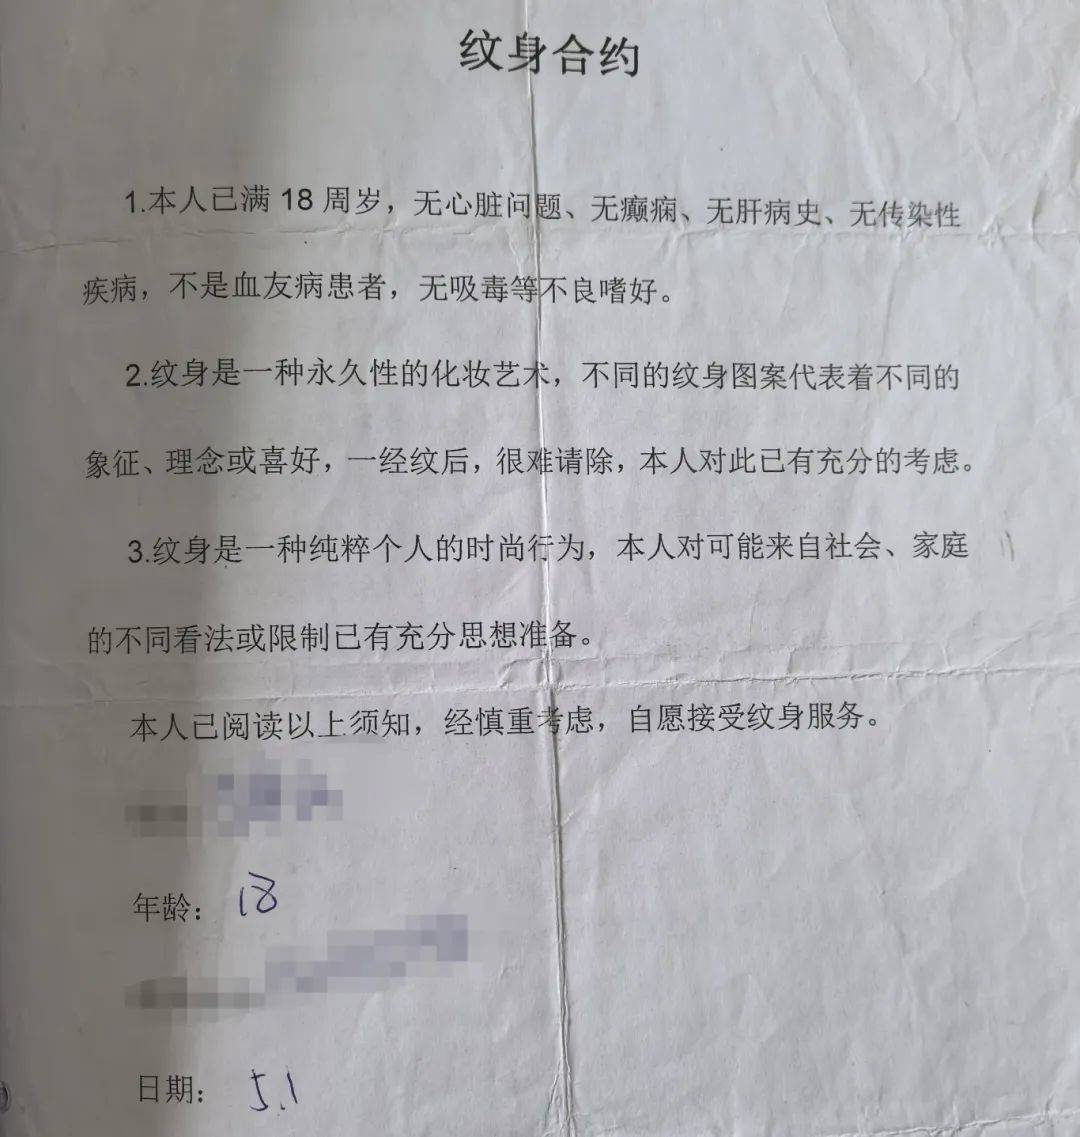 纹身合约
1.本人已满 18 周岁，无心脏问题、无癫痫、无肝病史、无传染性
疾病，不是血友病患者，无吸毒等不良嗜好。
2.纹身是一种永久性的化妆艺术，不同的纹身图案代表着不同的
象征、理念或喜好，一经纹后，很难请除，本人对此已有充分的考虑。
3.纹身是一种纯粹个人的时尚行为，本人对可能来自社会、家庭
的不同看法或限制已有充分思想准备。
本人已阅读以上须知，经慎重考虑，自愿接受纹身服务。
年龄： 18
日期： 5.1